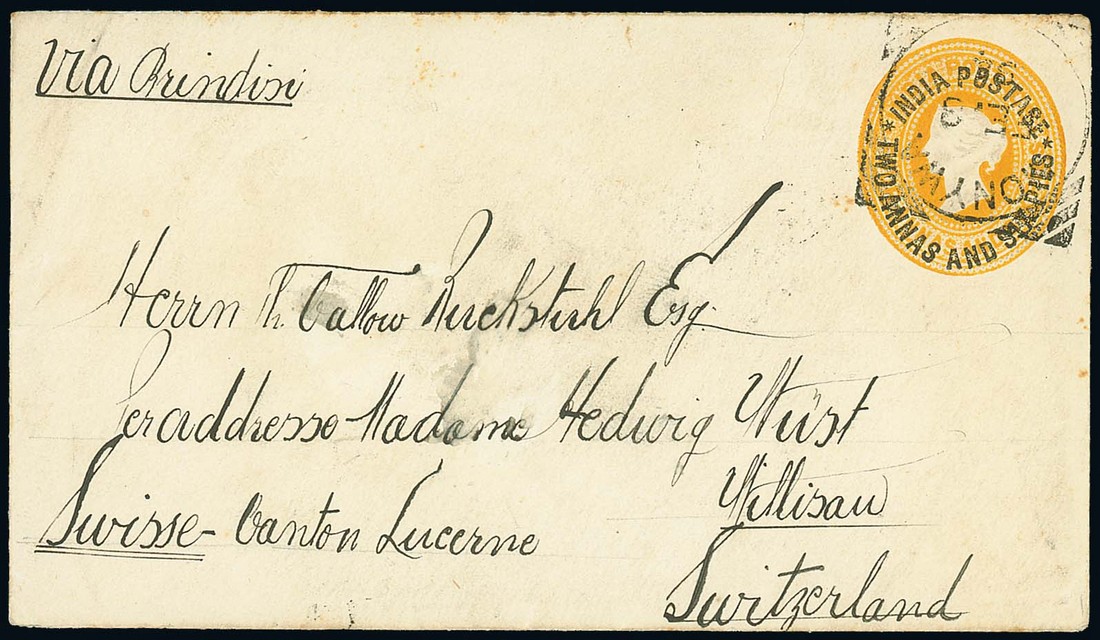 Via Brindisi
INDIA POSTAGE
TWO ANNAS AND SIX PIES
Herrn Th. Callow Ruckstuhl Esq.
Peraddresse Madame Hedwig Wüst
Willisau
Swisse - Canton Lucerne
Switzerland